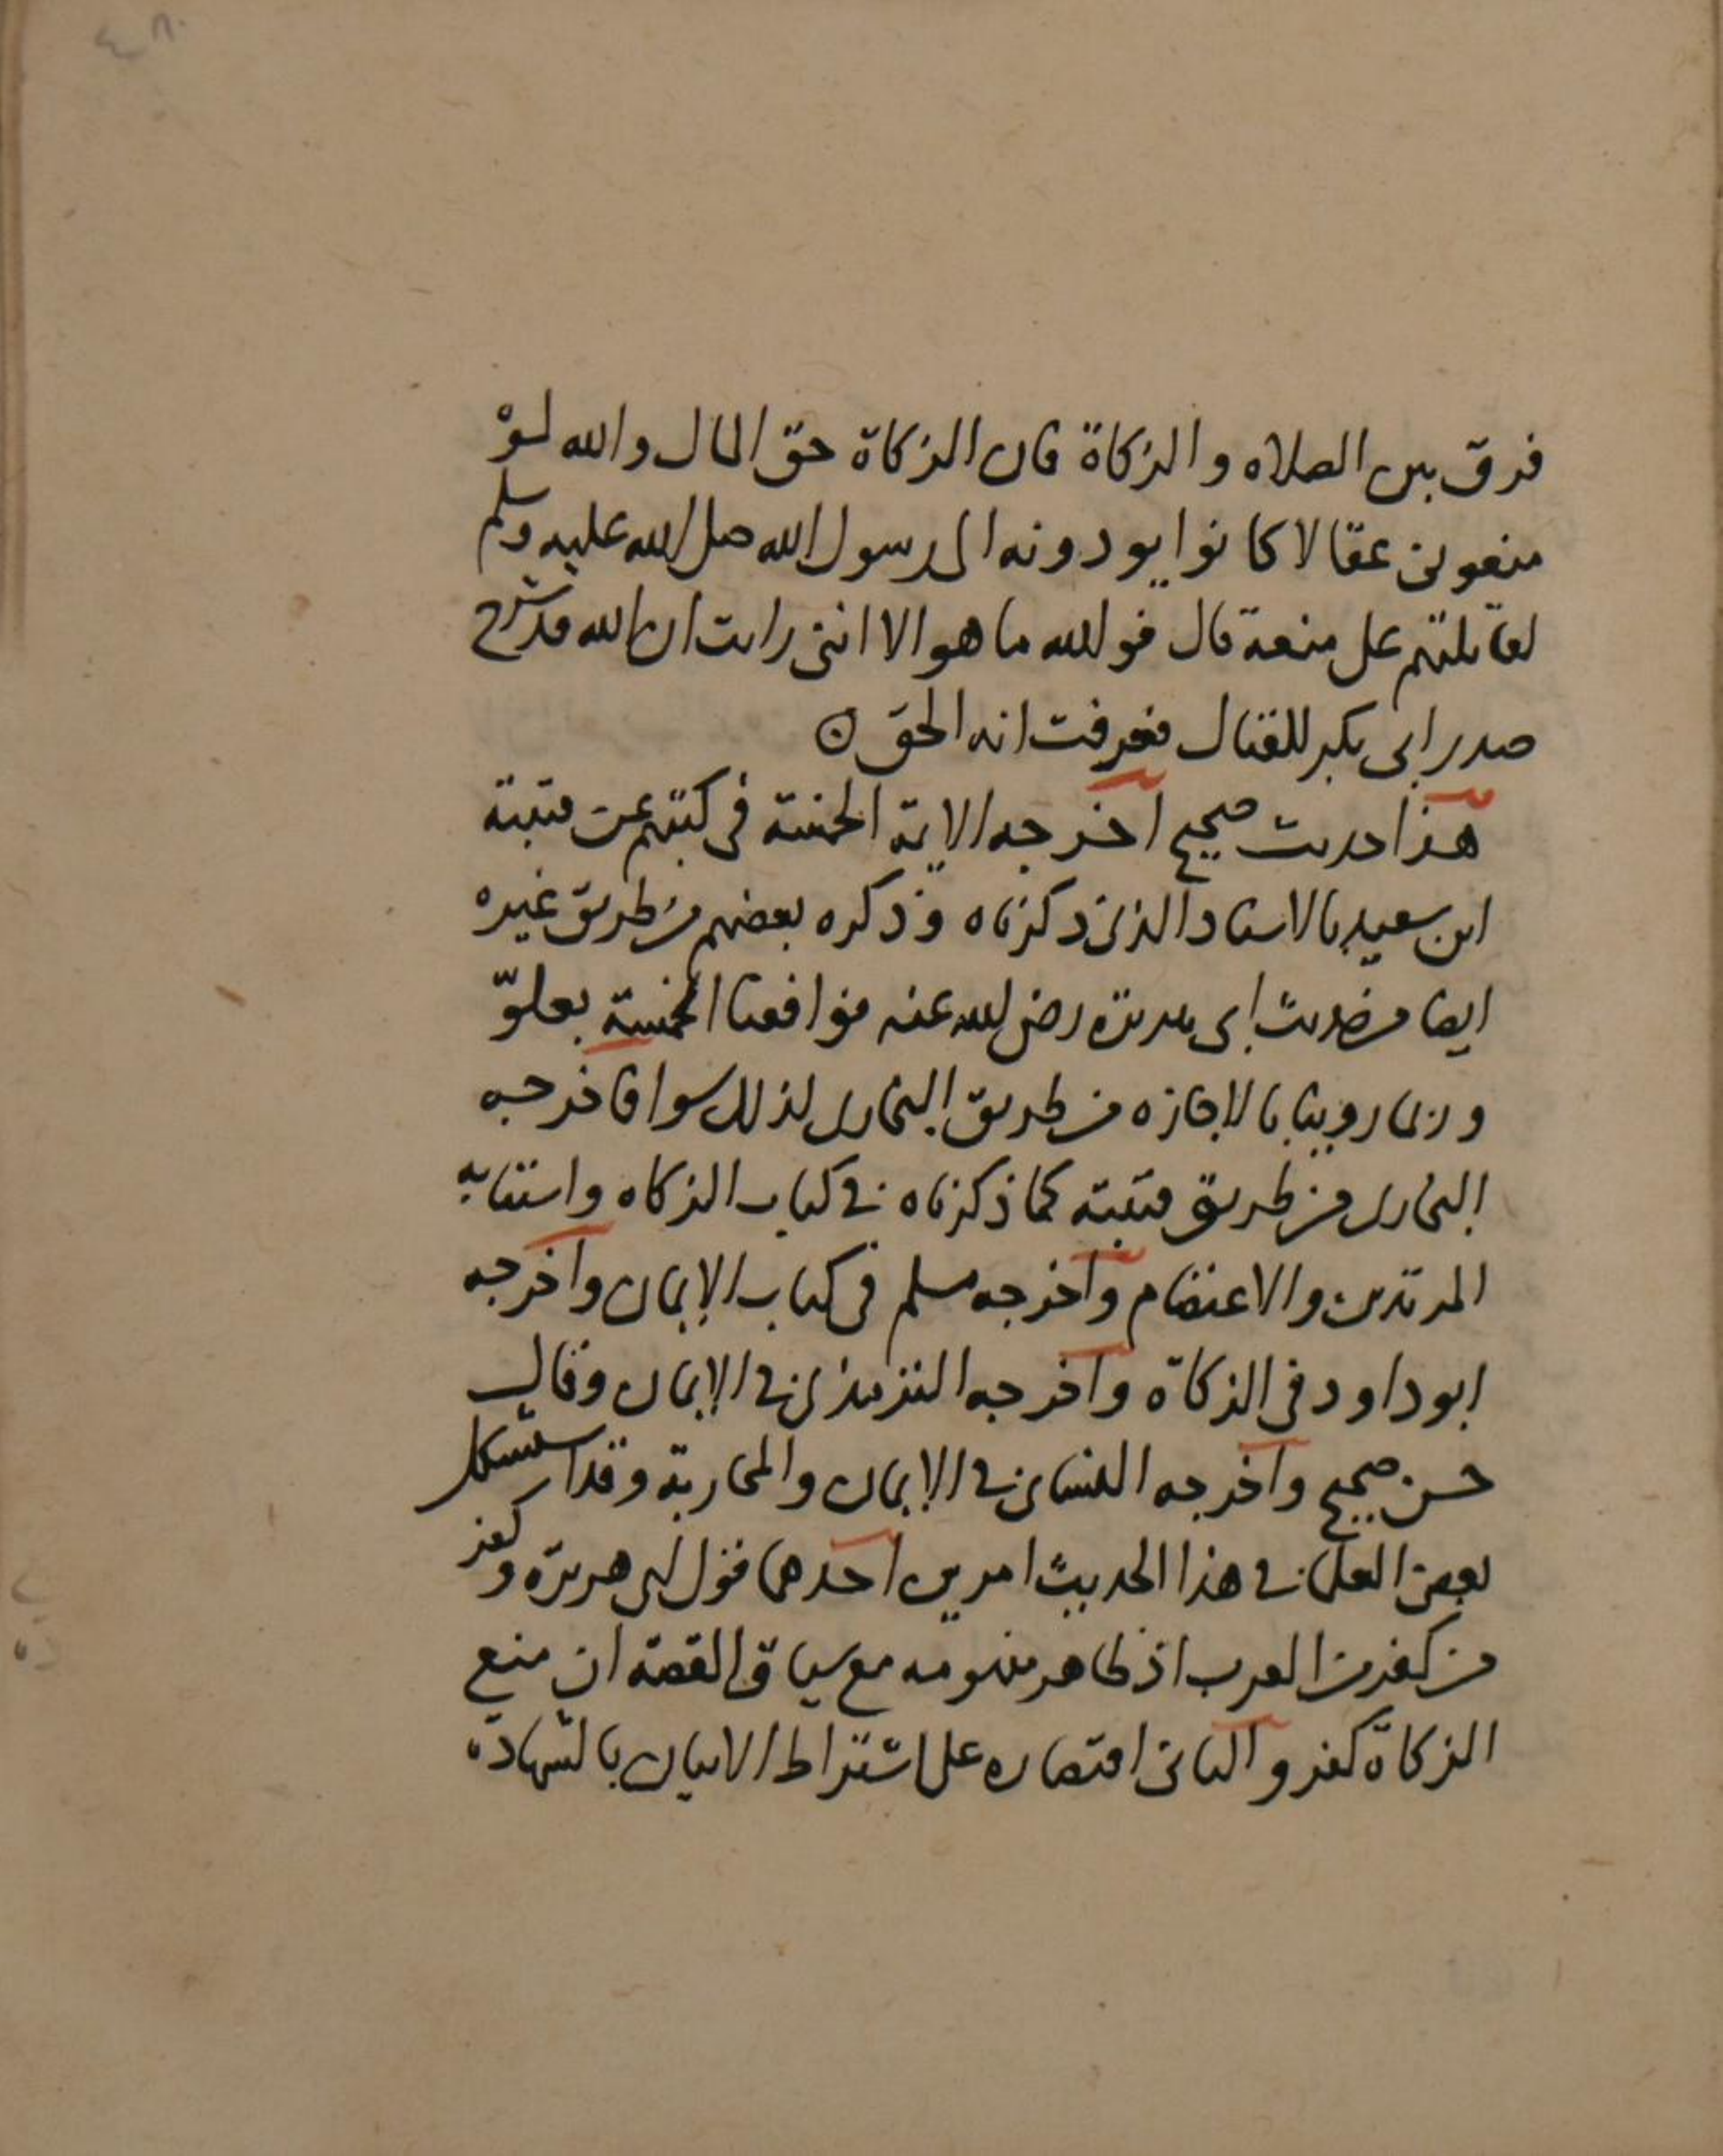 ٤٨٠
فرق بين الصلاه والزكاة فان الزكاة حق المال والله لو
منعوني عقالا كانوا يودونه الى رسول الله صلى الله عليه وسلم
لقاتلتهم على منعه قال فوالله ما هو الا انني رايت ان الله قد شرح
صدر ابي بكر للقتال فعرفت انه الحق
هذا حديث صحيح اخرجه الايمة الخمسة في كتبهم عن قتيبة
ابن سعيد بالاسناد الذي ذكرناه وذكره بعضهم من طريق غيره
ايضا من حديث ابي هريرة رضي الله عنه فوافقنا الخمسة بعلو
وربما روينا بالاجازه من طريق البخاري لذلك سوا فاخرجه
البخاري من طريق قتيبة كما ذكرناه في كتاب الزكاه واستتابه
المرتدين والاعتصام واخرجه مسلم في كتاب الايمان واخرجه
ابو داود في الزكاة واخرجه الترمذي في الايمان وقال
حسن صحيح واخرجه النساي في الايمان والمحاربة وقد استشكل
بعض العلما في هذا الحديث امرين احدهما قول ابي هريرة وكفر
من كفر من العرب اذ ظاهر مفهومه مع سياق القصة ان منع
الزكاة كفر والثاني اقتصاره على اشتراط الاتيان بالشهادة